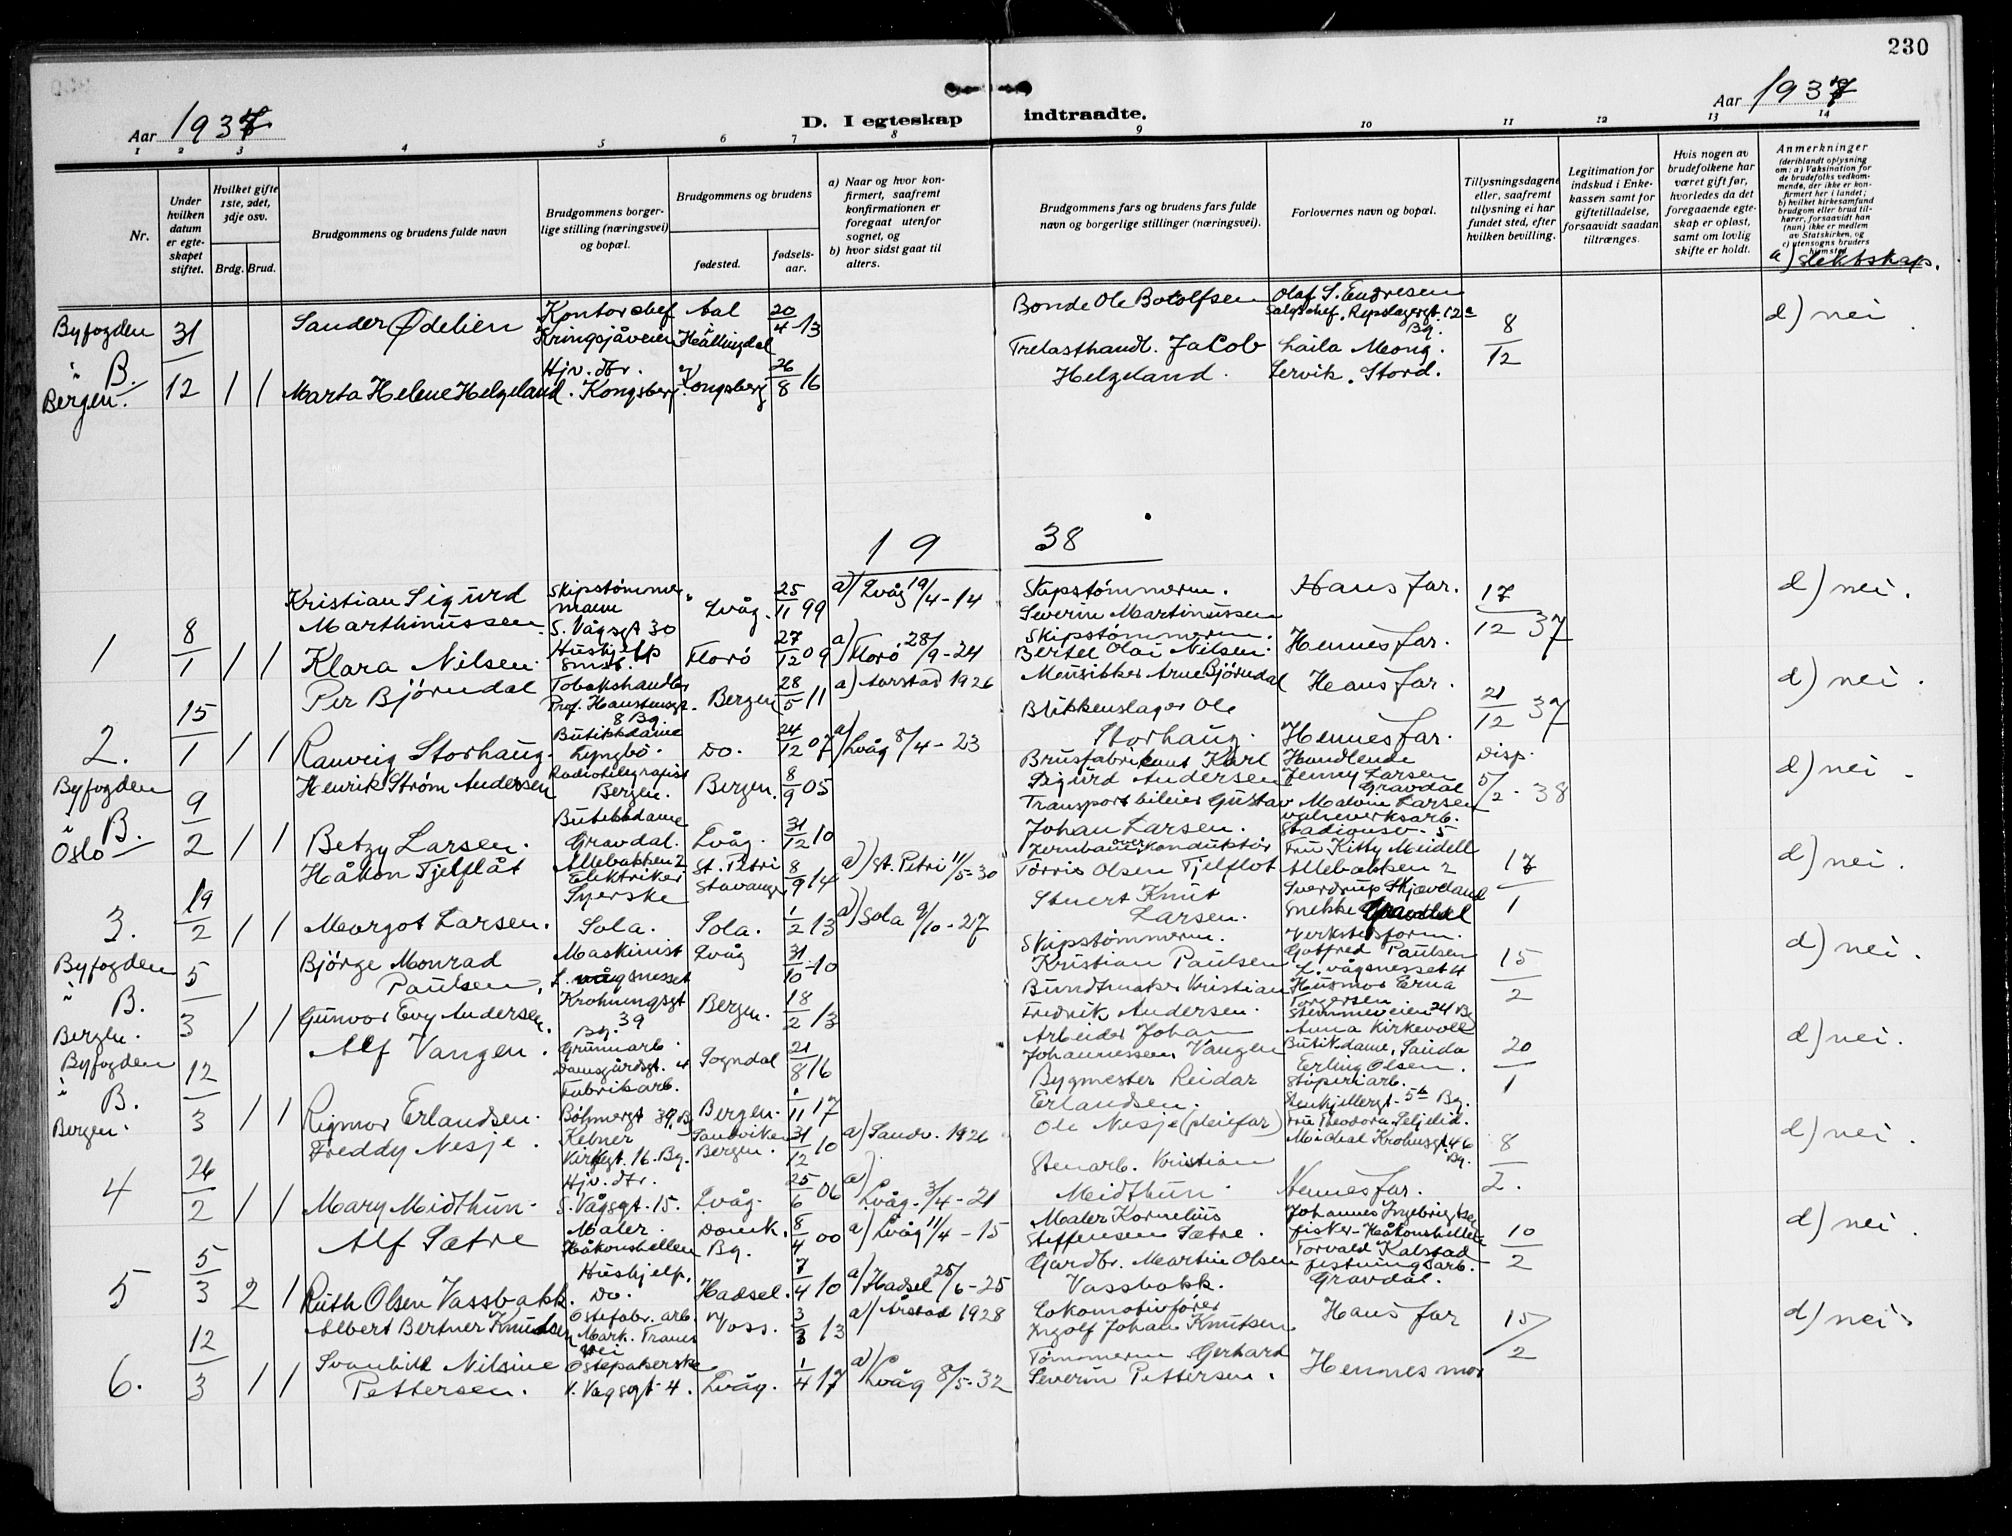 230
Aar 1937
D. I egteskap indtraadte.
Aar 1937
1 2 3 4 5 6 7 8 9 10 11 12 13 14
Nr.
Under hvilken datum er egteskapet stiftet.
Hvilket gifte 1ste, 2det, 3dje osv.
Brdg. Brud.
Brudgommens og brudens fulde navn
Brudgommens borgerlige stilling (næringsvei) og bopæl.
Brudgommens og brudens
fødested.
fødselsaar.
a) Naar og hvor konfirmert, saafremt konfirmationen er foregaat utenfor sognet, og
b) hvor sidst gaat til alters.
Brudgommens fars og brudens fars fulde navn og borgerlige stillinger (næringsvei).
Forlovernes navn og bopæl.
Tillysningsdagene eller, saafremt tillysning ei har fundet sted, efter hvilken bevilling.
Legitimation for indskud i Enkekassen samt for giftetilladelse, forsaavidt saadan tiltrænges.
Hvis nogen av brudefolkene har været gift før, hvorledes da det foregaaende egteskap er opløst, samt om lovlig skifte er holdt.
Anmerkninger
(deriblandt oplysning om: a) Vaksination for de brudefolks vedkommende, der ikke er konfirmert her i landet; b) hvilket kirkesamfund brudgom eller brud tilhører, forsaavidt han (hun) ikke er medlem av Statskirken, og c) utensogns bruders hjemsted
d) slektskap.
Byfogden i B. Bergen. 31/12 1 1
Sander Ødelien Kontorchef Kringsjåveien Aal Hallingdal 20/4-13
Bonde Ole Botolfsen Olaf S. Endresen Salgschef, Repslagergt. 12a Bg. 8/12 d) nei
Marta Helene Helgeland Hjv. dtr. Kongsberg Kongsberg 26/8 16
Trelasthandl. Jacob Helgeland. Laila Meong. Lervik, Stord.
19 38
1 8/1 1 1
Kristian Sigurd Marthinussen Skipstømmermann S. Vågsgt 30 Lvåg. 25/11 99 a) Lvåg 19/4-14
Skipstømmerm. Severin Martinussen Hans far. 17/12 37 d) nei.
Klara Nilsen. Hushjelp Smst. Florö 27/12 09 a) Florö 28/9-24
Skipstømmerm. Bertel Olai Nilsen. Hennes far.
2. 15/1 1 1
Per Björndal Tobakshandler Prof. Hanstensgt. 8 Bg. Bergen 28/5 11 a) Aarstad 1926
Musikker Arne Björndal Hans far. 21/12 37 d) nei.
Ranveig Storhaug. Butikkdame Lyngbö. Do. 24/12 07 a) Lvåg 8/4-23
Blikkenslager Ole Storhaug. Hennes far.
Byfogden i B. Oslo 9/2 1 1
Henrik Strøm Andersen Radiotelegrafist Bergen. Bergen. 8/9 05
Brusfabrikant Karl Sigurd Andersen Handlende Jenny Larsen Gravdal Disp. 5/2-38 d) nei
Betzy Larsen. Butikkdame Gravdal. Lvåg. 31/12 10
Transportbileier Gustav Johan Larsen. Malvin Larsen valseverksarb. Stadionsv. 5
3. 19/2 1 1
Håkon Tjelflåt Allebakken 2 Elektriker St. Petri Stavanger 8/9 14 a) St. Petri 11/5-30
Jernbaneoverkonduktör Törris Olsen Tjelflot Fru Kitty Meidell Allebakken 2 17/1 d) nei.
Margot Larsen. Syerske Sola. Sola. 1/2 13 a) Sola 9/10-27
Stuert Knut Larsen. Sverdrup Skjæveland Snekker
Byfogden i B. Bergen. 5/3 1 1
Björge Monrad Paulsen. Maskinist L. vågsnesset Lvåg 31/10-10
Skipstømmerm. Kristian Paulsen Verkstedsform. Gotfred Paulsen L. vågsnesset 4 15/2 d) nei.
Gunvor Evy Andersen. Krohnengsgt Bg. 39 Bergen. 18/2 13
Bundtmaker Kristian Fredrik Andersen. Husmor Erna Torgersen Stemmeveien 24 Bg
Byfogden i B. Bergen. 12/3 1 1
Alf Vangen. Grunnarb. Damsgårdsgt. 4 Sogndal 21/8 16
Arbeider Johan Johannessen Vangen Anna Kirkevoll Butikdame, Sauda 20/1 d) nei.
Rigmor Erlandsen. Fabrikarb. Böhmergt 39, Bg Bergen. 1/11 17
Bygmester Reidar Erlandsen. Erling Olsen. Støperiarb. Steinkjellergt. 5b Bg.
4 26/2 1 1
Freddy Nesje. Kelner Kirkegt. 16. Bg. Sandviken Bergen. 31/12 10 a) Sandv. 1926
Ole Nesje (pleiefar) Fru Theodora Seljelid. Michael Krohnsgt 46 Bg. 8/2. d) nei.
Mary Midthun. Hjv. dtr. S. Vågsgt. 15. Lvåg. 25/6 06 a) Lvåg. 3/4-21
Stenarb. Kristian Midthun. Hennes far.
5 5/3 2 1
Alf Sætre Maler. Håkonshellen Domk. Bg. 8/4 00 a) Lvåg 11/4-15
Maler Kornelius Steffensen Sætre. Johannes Ingebrigtsen fisker-Håkonshellen 10/2 d) nei.
Ruth Olsen Vassbakk. Hushjelp. Do. Hadsel. 7/4 10 a) Hadsel 25/6-25
Gardbr. Martin Olsen Vassbakk. Torvald Kalstad festningsarb. Gravdal.
6. 12/3 1 1
Albert Bertner Knudsen Ostefabr. arb. Mark. Tranes vei Voss. 3/3 13 a) Årstad 1928
Lokomotivfører Ingolf Johan Knutsen Hans far 15/2 d) nei.
Svanhild Nilsine Pettersen. Ostepakerske V. Vagsgt 4. Lvåg. 1/4 17 a) Lvåg 8/5-32
Tømmerm. Gerhard Severin Pettersen. Hennes mor